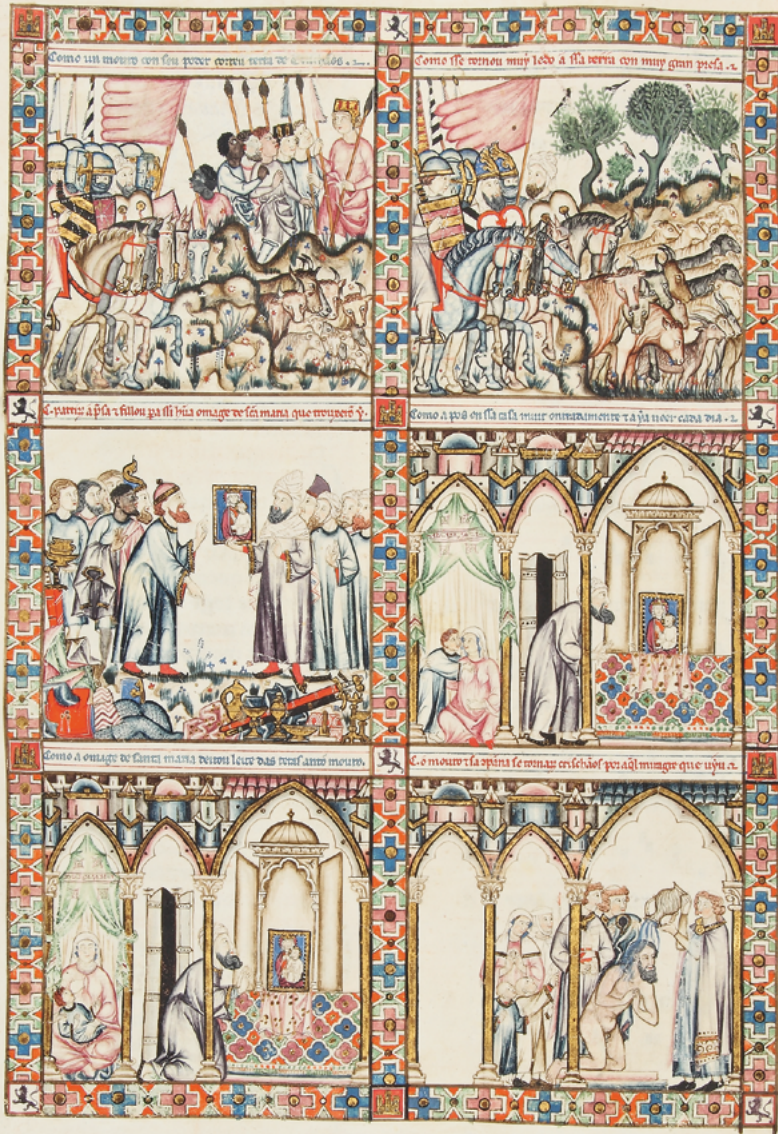 Como un mouro con seu poder correu terra de
Como sse tornou muy ledo a ssa terra con muy gran presa.
C. partir a p̃sa ⁊ fillou pa ssi hũa omage de sc̃a maria que trouxerõ y.
Como a pos en ssa casa muit onrradamente ⁊ a ya ueer cada dia.
Como a omage de santa maria deitou leite das tetas ante o mouro.
C. o mouro ⁊ sa cõpana se tornarõ crischãos por aq̃l miragre que uyu